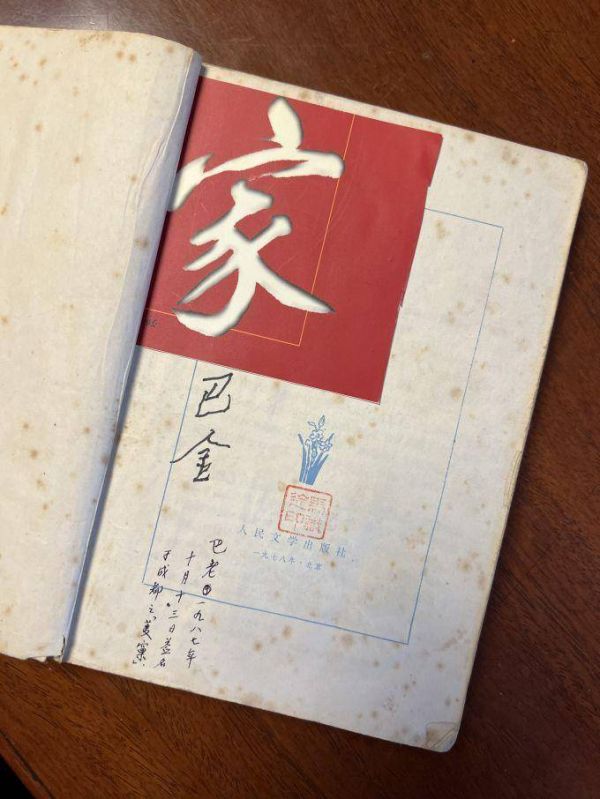 家
巴金
馬識
途印
人民文学出版社
一九七八年·北京
巴老一九八七年
十月十三日签名
于成都之“菱窠”.